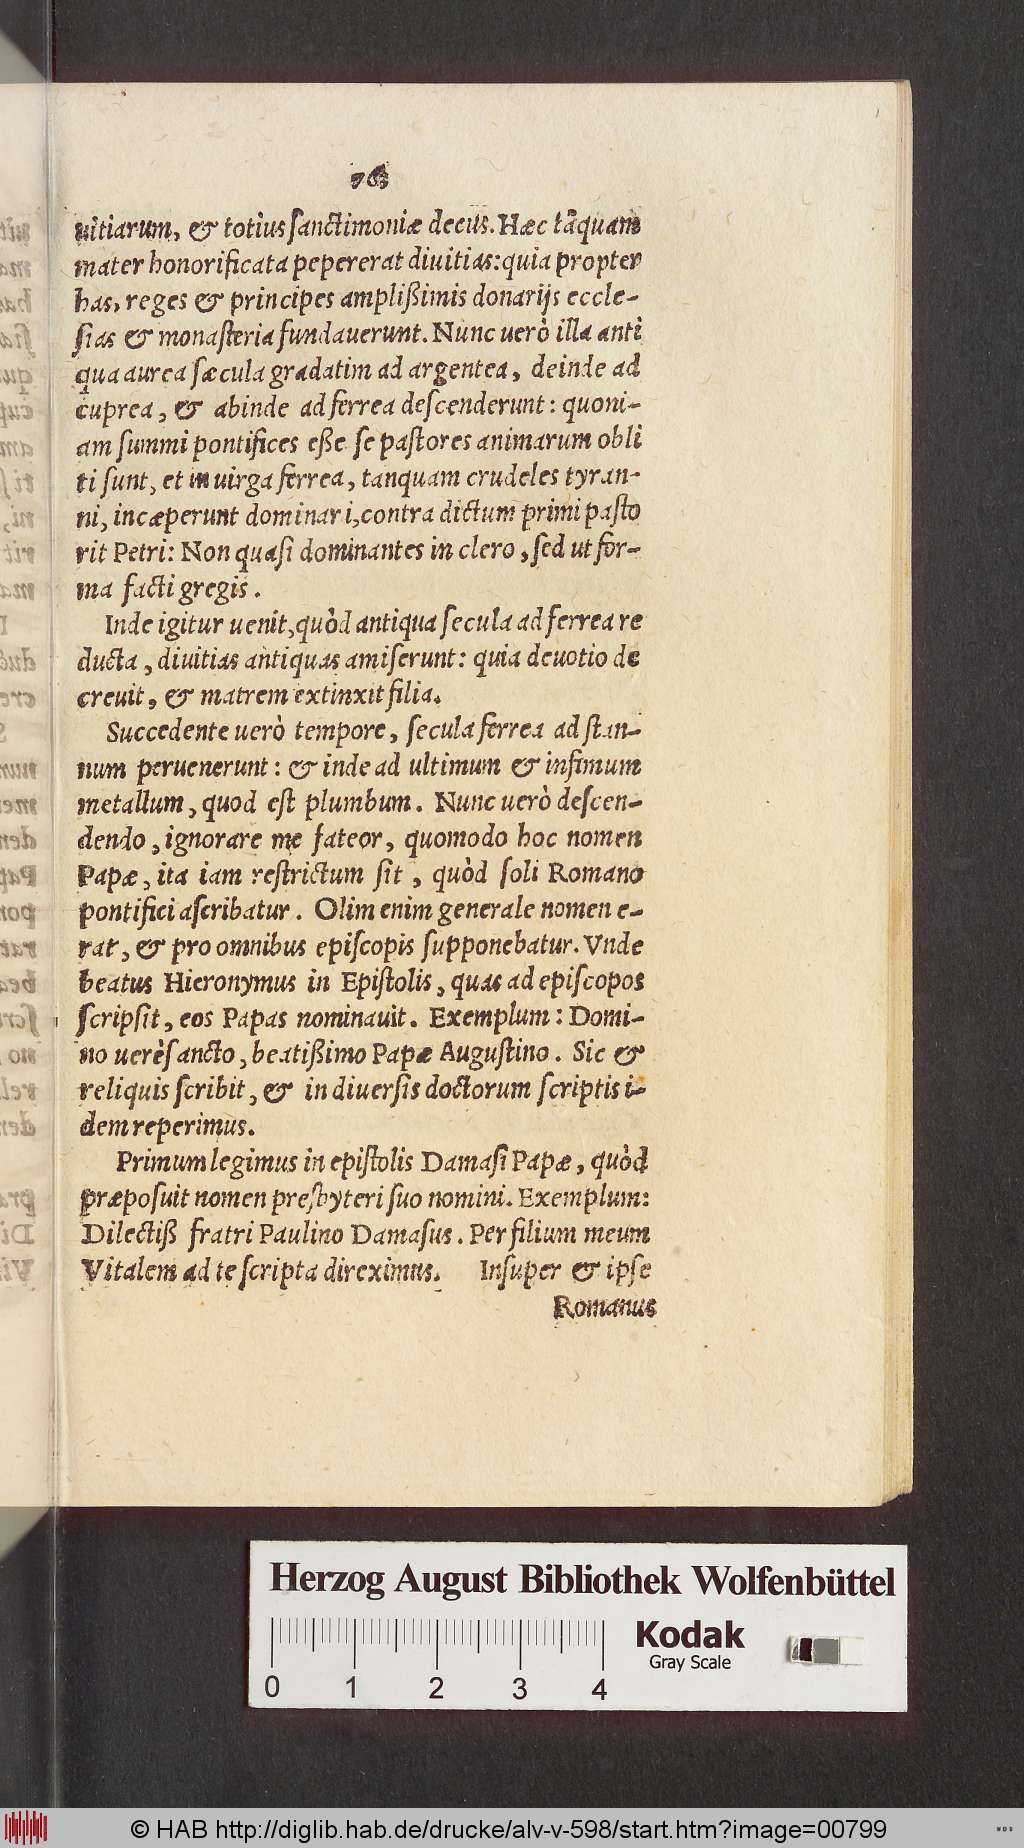 uitiarum, & totius sanctimoniæ decus. Hæc tãquam
mater honorificata pepererat diuitias: quia propter
has, reges & principes amplißimis donarijs eccle-
sias & monasteria fundauerunt. Nunc uerò illa anti
qua aurea sæcula gradatim ad argentea, deinde ad
cuprea, & abinde ad ferrea descenderunt: quoni-
am summi pontifices eße se pastores animarum obli
ti sunt, et in uirga ferrea, tanquam crudeles tyran-
ni, incæperunt dominari, contra dictum primi pasto
rit Petri: Non quasi dominantes in clero, sed ut for-
ma facti gregis.
Inde igitur uenit, quòd antiqua secula ad ferrea re
ducta, diuitias antiquas amiserunt: quia deuotio de
creuit, & matrem extinxit filia.
Succedente uerò tempore, secula ferrea ad stan-
num peruenerunt: & inde ad ultimum & infimum
metallum, quod est plumbum. Nunc uerò descen-
dendo, ignorare me fateor, quomodo hoc nomen
Papæ, ita iam restrictum sit, quòd soli Romano
pontifici ascribatur. Olim enim generale nomen e-
rat, & pro omnibus episcopis supponebatur. Vnde
beatus Hieronymus in Epistolis, quas ad episcopos
scripsit, eos Papas nominauit. Exemplum: Domi-
no uerè sancto, beatißimo Papæ Augustino. Sic &
reliquis scribit, & in diuersis doctorum scriptis i-
dem reperimus.
Primum legimus in epistolis Damasi Papæ, quòd
præposuit nomen presbyteri suo nomini. Exemplum:
Dilectiß fratri Paulino Damasus. Per filium meum
Vitalem ad te scripta direximus. Insuper & ipse
Romanus
Herzog August Bibliothek Wolfenbüttel
Kodak
Gray Scale
0 1 2 3 4
© HAB http://diglib.hab.de/drucke/alv-v-598/start.htm?image=00799